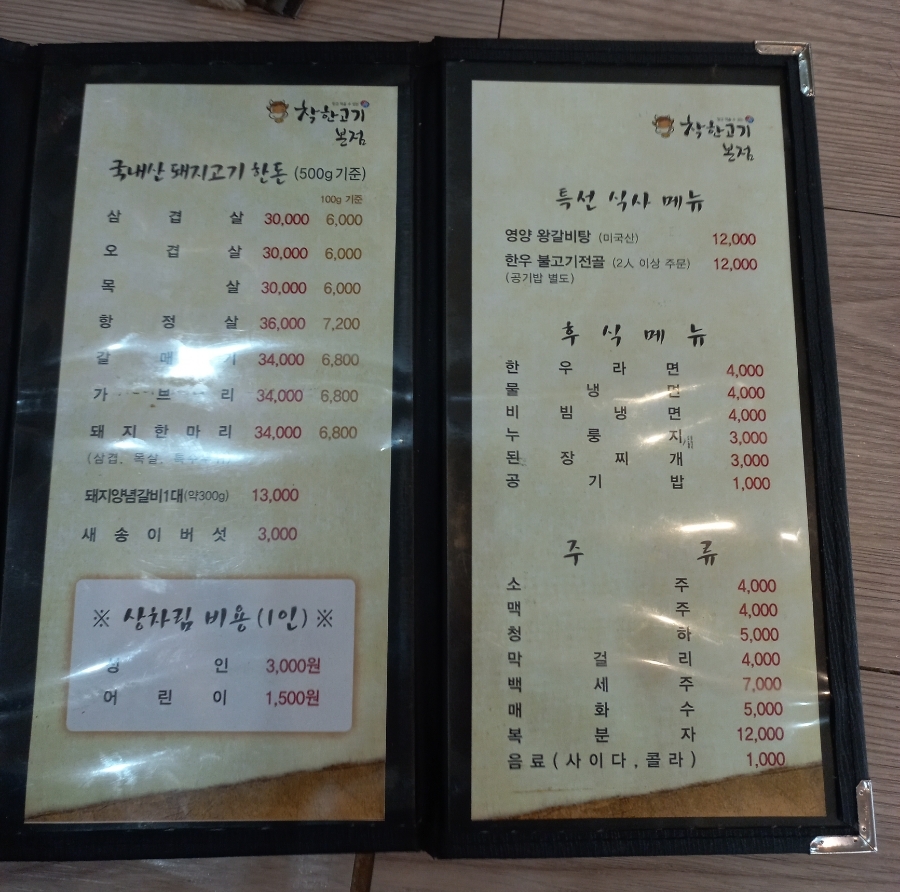 착한고기
본점
국내산 돼지고기 한돈 (500g기준)
100g 기준
삼겹살 30,000 6,000
오겹살 30,000 6,000
목살 30,000 6,000
항정살 36,000 7,200
갈매기 34,000 6,800
가브리 34,000 6,800
돼지한마리 34,000 6,800
(삼겹, 목살,
돼지양념갈비1대(약300g) 13,000
새송이버섯 3,000
※ 상차림 비용(1인) ※
성인 3,000원
어린이 1,500원
착한고기
본점
특선 식사 메뉴
영양 왕갈비탕 (미국산) 12,000
한우 불고기전골 (2人 이상 주문) 12,000
(공기밥 별도)
후식메뉴
한우라면 4,000
물냉면 4,000
비빔냉면 4,000
누룽지 3,000
된장찌개 3,000
공기밥 1,000
주류
소주 4,000
맥주 4,000
청하 5,000
막걸리 4,000
백세주 7,000
매화수 5,000
복분자 12,000
음료(사이다,콜라) 1,000